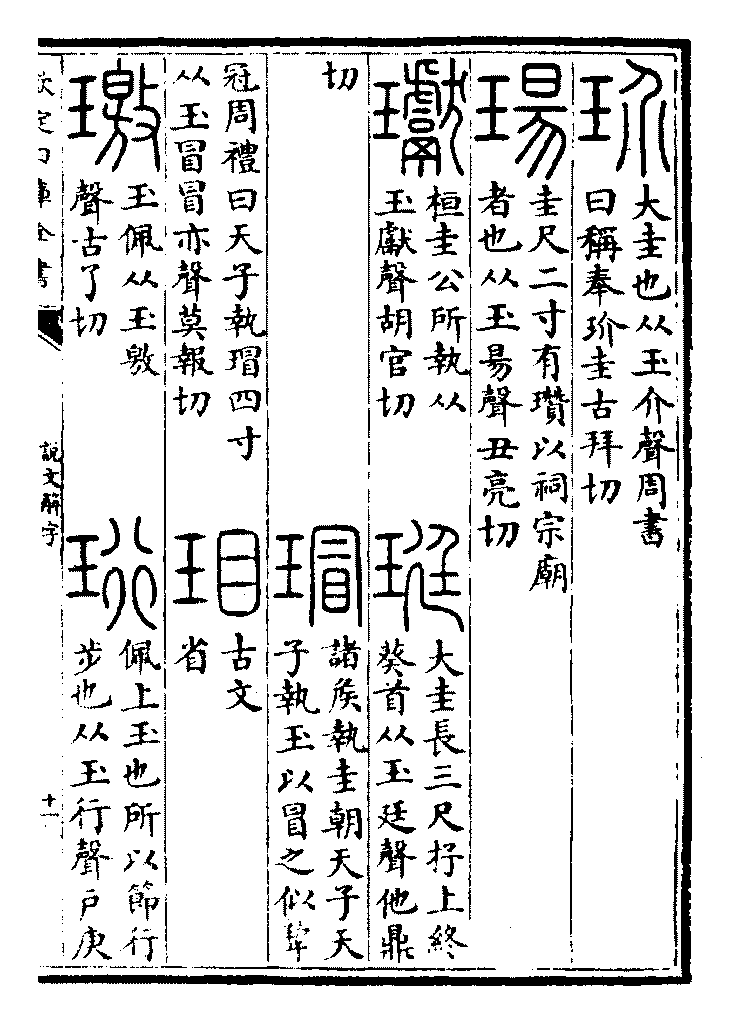 玠
大圭也从玉介聲周書
曰稱奉玠圭古拜切
瑒
圭尺二寸有瓚以祠宗廟
者也从玉昜聲丑亮切
瓛
桓圭公所執从
玉獻聲胡官切
珽
大圭長三尺抒上終
葵首从玉廷聲他鼎
切
瑁
諸侯執圭朝天子天
子執玉以冒之似犂
冠周禮曰天子執瑁四寸
从玉冒冒亦聲莫報切
古文
省
璬
玉佩从玉敫
聲古了切
珩
佩上玉也所以節行
步也从玉行聲戶庚
欽定四庫全書
說文解字
十一